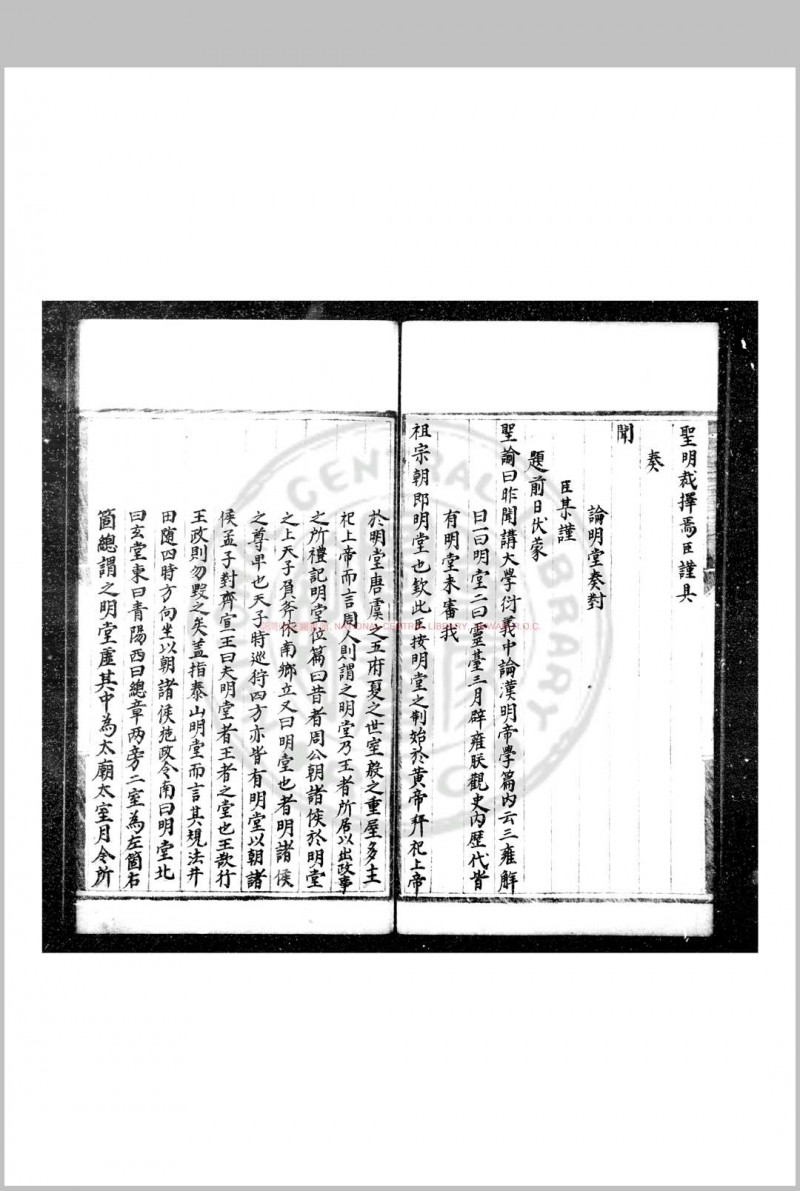 聖明裁擇焉臣謹具
奏
聞
論明堂奏對
臣某謹
題前日伏蒙
聖諭曰昨聞講大學衍義中論漢明帝學篇內云三雍解
曰一曰明堂二曰靈臺三曰辟雍朕觀史內歷代皆
有明堂未審我
祖宗朝即明堂也欽此臣按明堂之制始於黃帝拜祀上帝
於明堂唐虞之五府夏之世室殷之重屋多主
祀上帝而言周人則謂之明堂乃王者所居以出政事
之所禮記明堂位篇曰昔者周公朝諸侯於明堂
之上天子負斧依南鄉立又曰明堂也者明諸侯
之尊卑也天子時巡狩四方亦皆有明堂以朝諸
侯孟子對齊宣王曰夫明堂者王者之堂也王欲行
王政則勿毀之矣蓋指泰山明堂而言其規法井
田隨四時方向坐以朝諸侯施政令南曰明堂北
曰玄堂東曰青陽西曰總章兩旁二室為左箇右
箇總謂之明堂虛其中為太廟太室月令所
NATIONAL CENTRAL LIBRARY, TAIWAN, R.O.C.